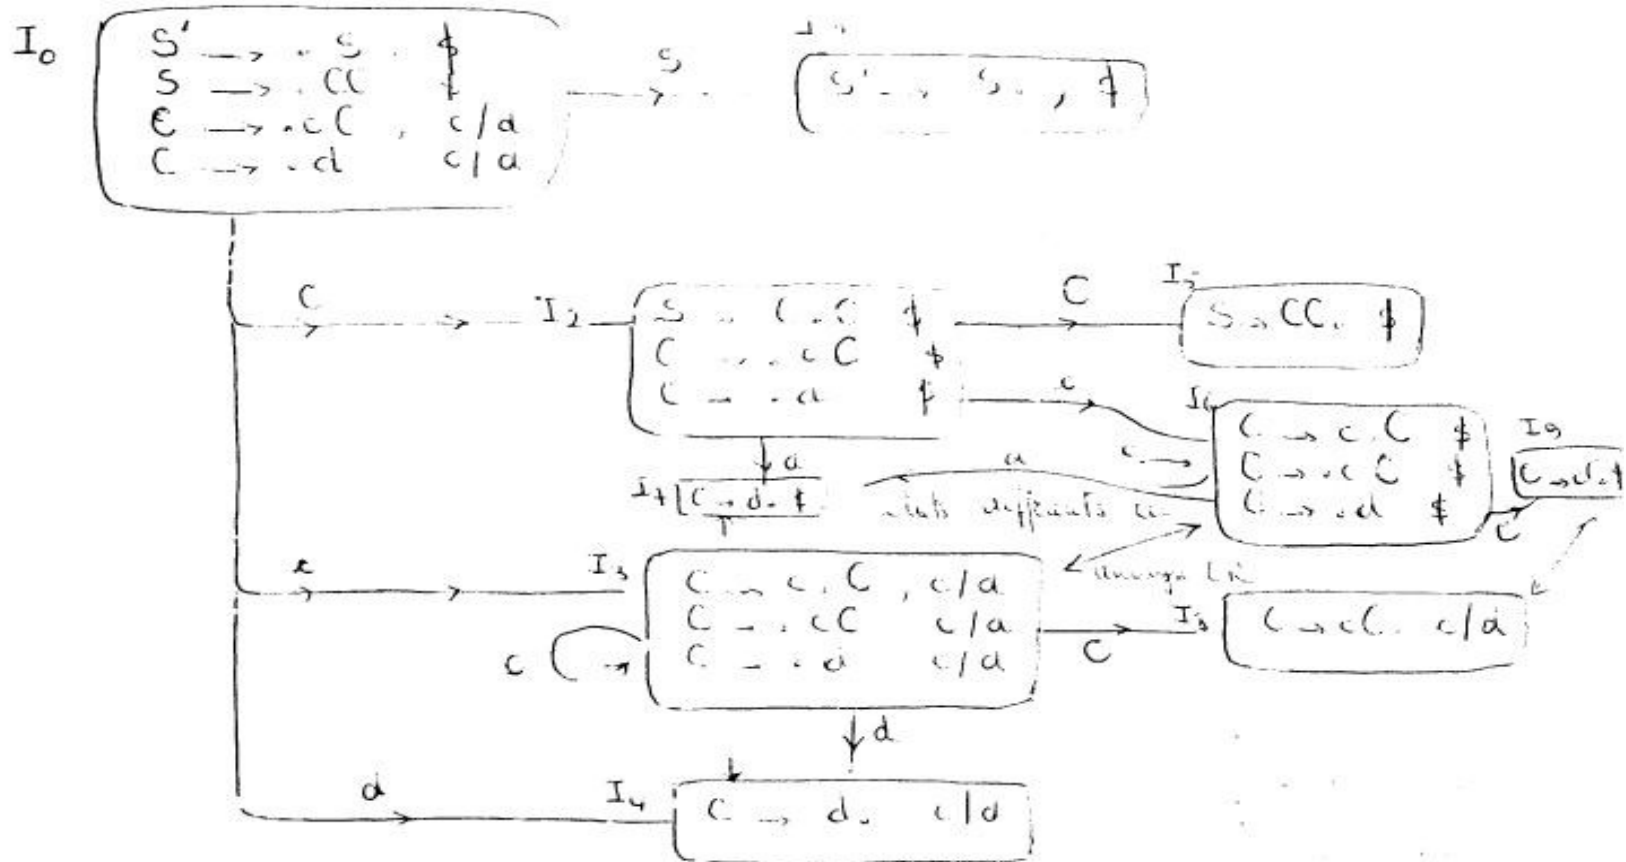 I₀
S' → . S . $
S → . CC $
C → . cC , c/d
C → . d c/d
S
S' → S. , $
C
I₂
S → C.C $
C → . cC $
C → . d $
C
I₅
S → CC. $
c
I₆
C → c.C $
C → .cC $
C → .d $
c
d
I₉
d
I₇
C → d. $
C
c
I₃
C → c.C , c/d
C → .cC c/d
C → .d c/d
c
C
I₈
C → cC. c/d
d
d
I₄
C → d. c/d